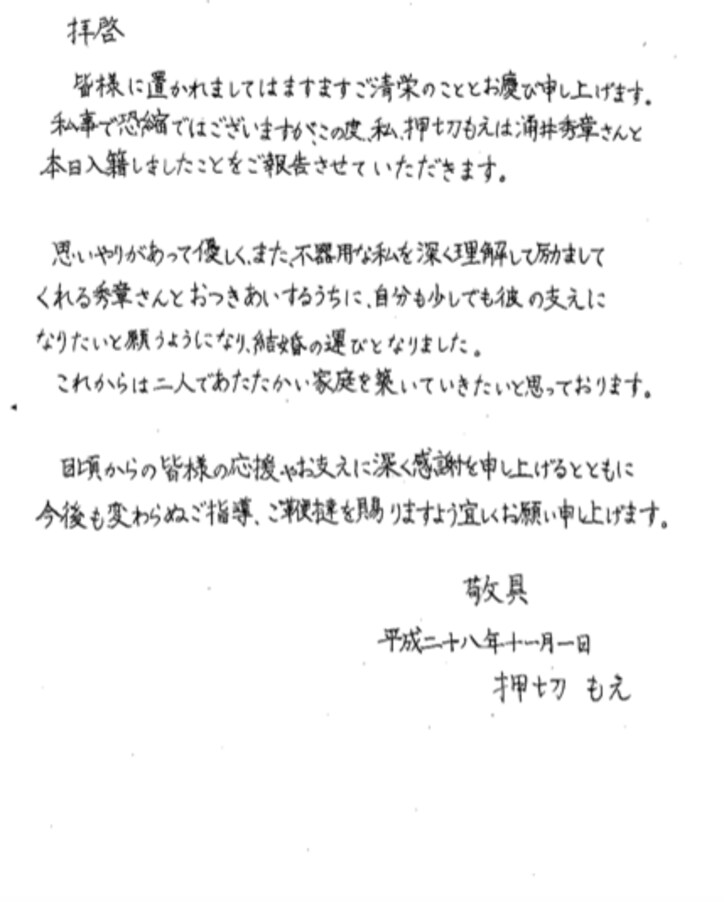 拝啓
皆様に置かれましてはますますご清栄のこととお慶び申し上げます。
私事で恐縮ではございますが、この度、私、押切もえは涌井秀章さんと
本日入籍しましたことをご報告させていただきます。
思いやりがあって優しく、また、不器用な私を深く理解して励まして
くれる秀章さんとおつきあいするうちに、自分も少しでも彼の支えに
なりたいと願うようになり、結婚の運びとなりました。
これからは二人であたたかい家庭を築いていきたいと思っております。
日頃からの皆様の応援やお支えに深く感謝を申し上げるとともに
今後も変わらぬご指導、ご鞭撻を賜りますよう宜しくお願い申し上げます。
敬具
平成二十八年十一月一日
押切 もえ